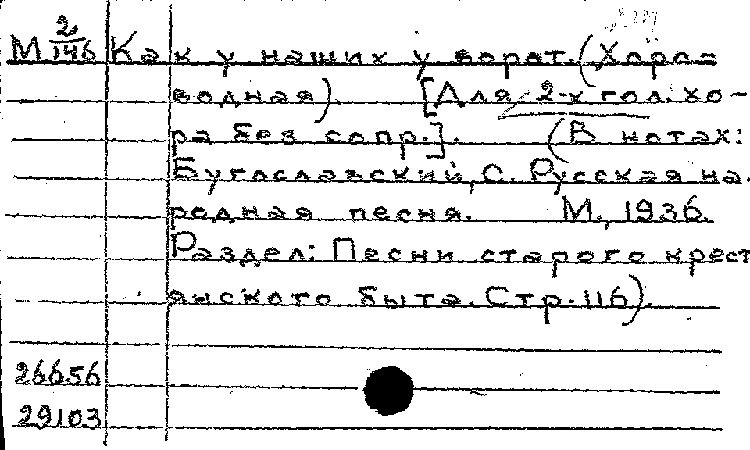 М 2/146 Как у наших у ворот. (Хоро=
водная). [Для 2-х гол. хо-
ра без сопр.]. (В нотах:
Бугославский, С. Русская на.
родная песня. М., 1936.
Раздел: Песни старого крест
янского быта. Стр. 116).
26656
29103